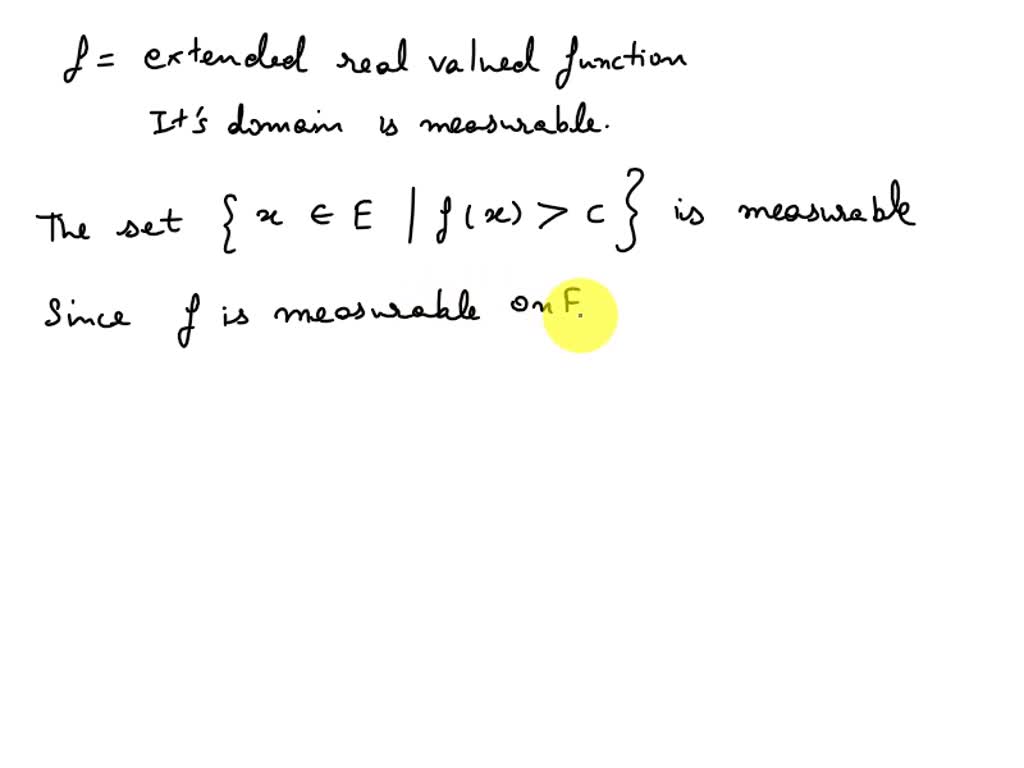 f = extended real valued function
It's domain is measurable.
The set { x ∈ E | f(x) > c } is measurable
Since f is measurable on F.